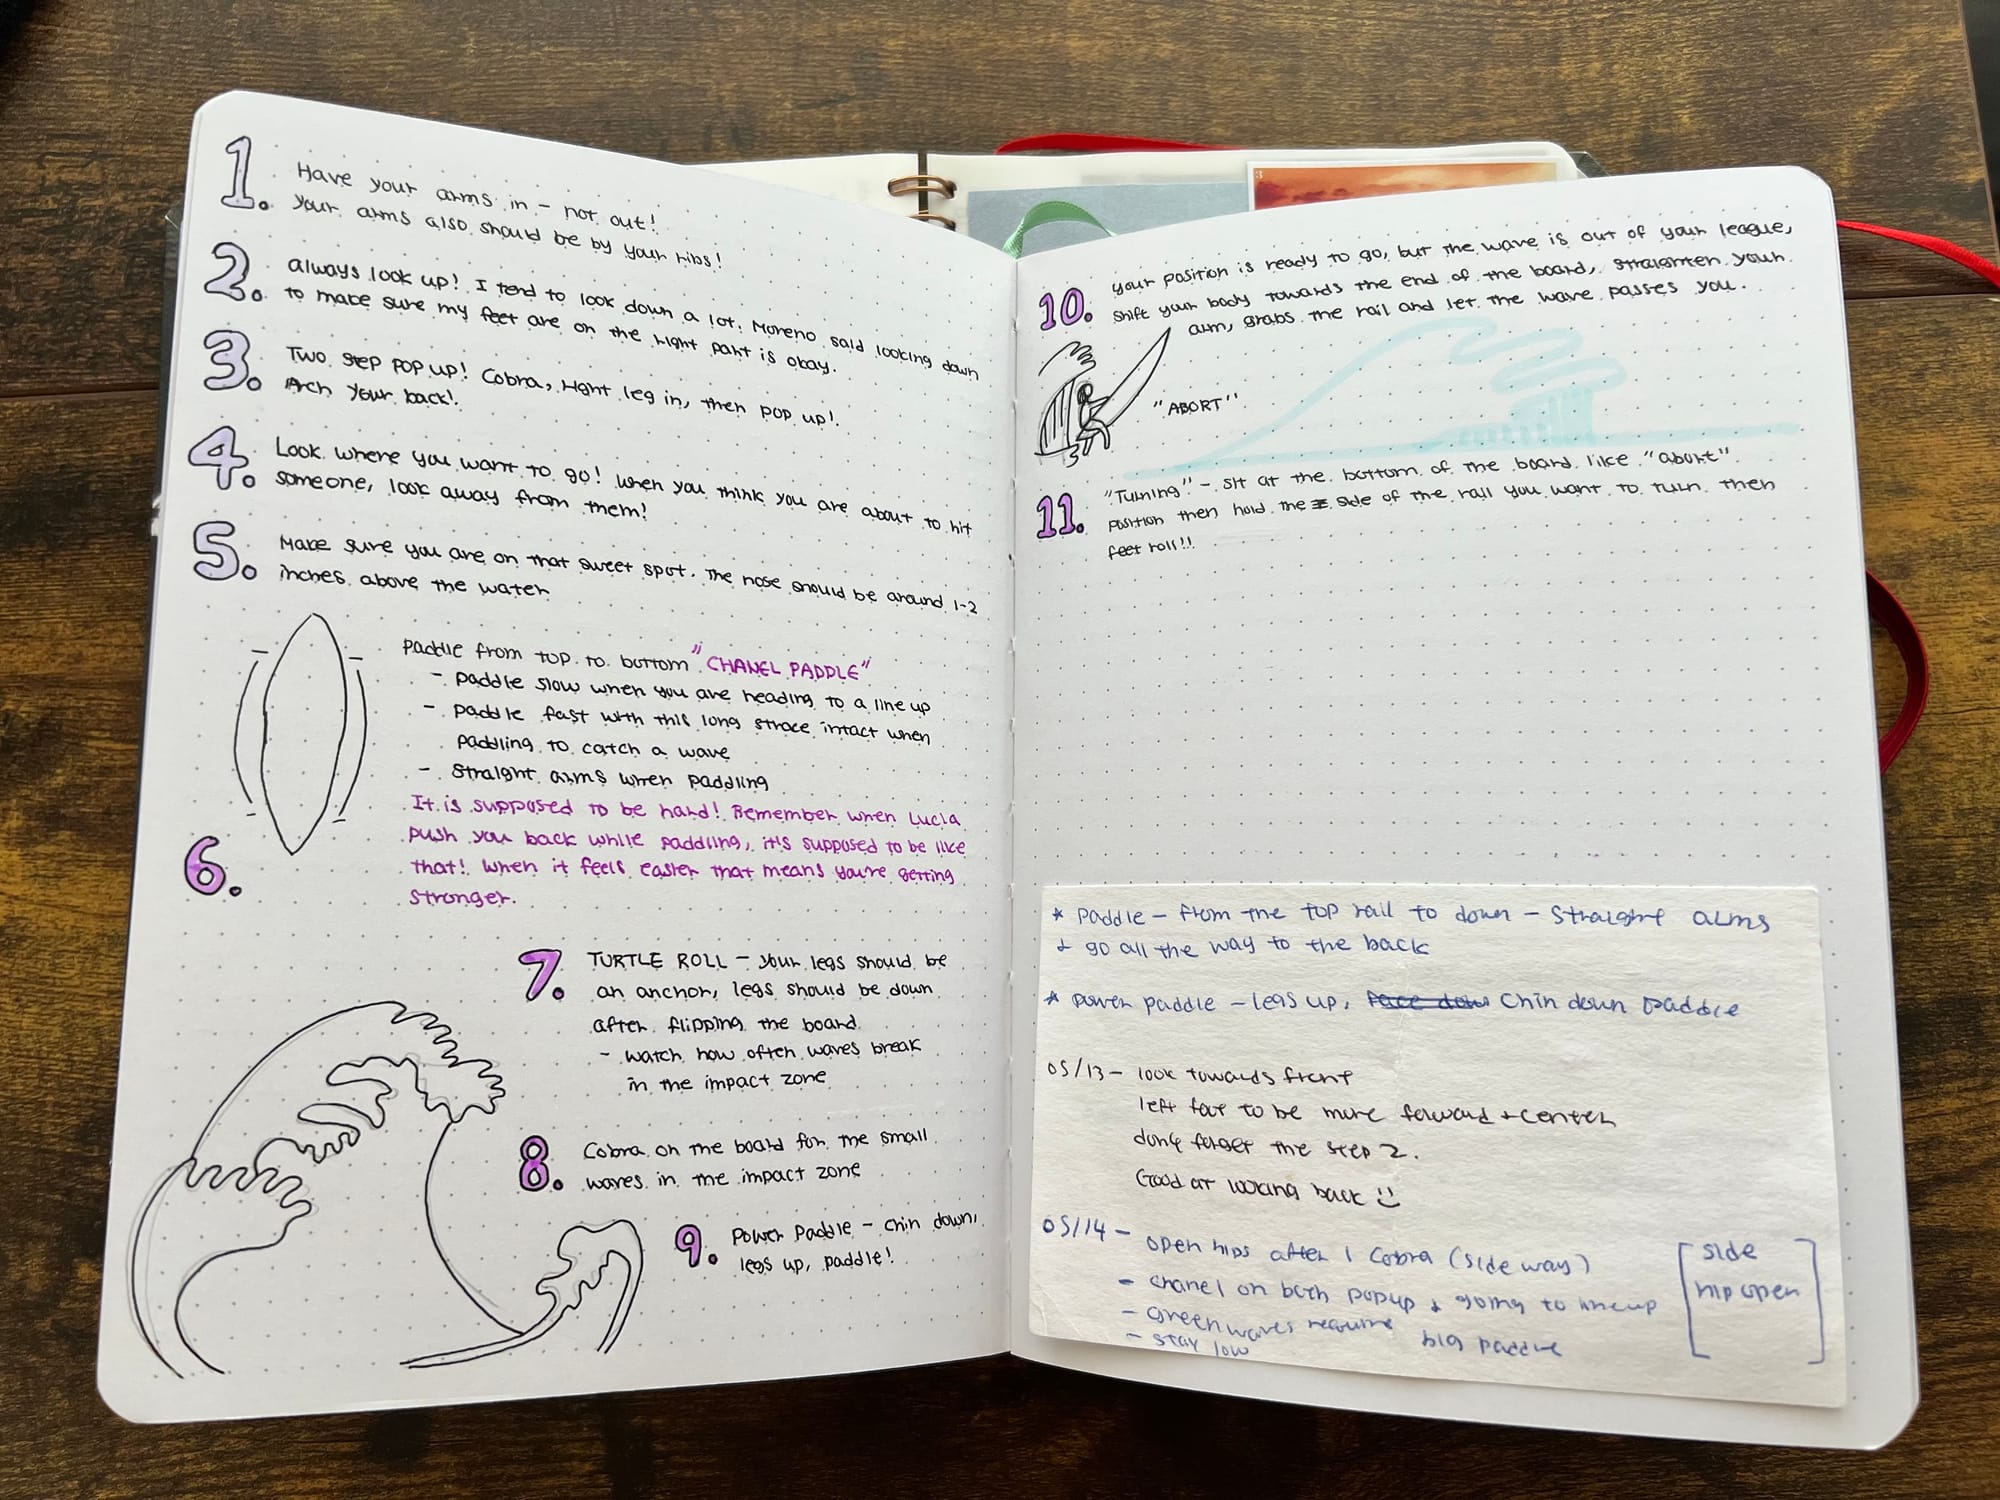 1. Have your arms in - not out!
your arms also should be by your ribs!
2. Always look up! I tend to look down a lot. Moreno said looking down
to make sure my feet are on the right part is okay.
3. Two step pop up! Cobra, right leg in, then pop up!
Arch your back!
4. Look where you want to go! When you think you are about to hit
someone, look away from them!
5. Make sure you are on that sweet spot. The nose should be around 1-2
inches above the water
6.
Paddle from top to bottom "CHANEL PADDLE"
- paddle slow when you are heading to a line up
- paddle fast with this long stroce intact when
paddling to catch a wave
- straight arms when paddling
It is supposed to be hard! Remember when Lucia
push you back while paddling, it's supposed to be like
that! When it feels easier that means you're getting
stronger.
7. TURTLE ROLL - your legs should be
an anchor, legs should be down
after flipping the board
- watch how often waves break
in the impact zone
8. Cobra on the board for the small
waves in the impact zone
9. Power Paddle - chin down,
legs up, paddle!
10. your position is ready to go, but the wave is out of your league,
shift your body towards the end of the board, straighten your
arm, grabs the rail and let the wave passes you.
"ABORT"
11. "Turning" - sit at the bottom of the board like "abort"
position then hold the side of the rail you want to turn then
feet roll!!
* Paddle - from the top rail to down - straight arms
+ go all the way to the back
* power paddle - legs up, face down chin down paddle
05/13 - look towards front
left foot to be more forward + center
don't forget the step 2.
Good at looking back
05/14 - open hips after 1 cobra (side way)
- chanel on both popup + going to lineup
- Green waves require big paddle
- stay low
side
hip open